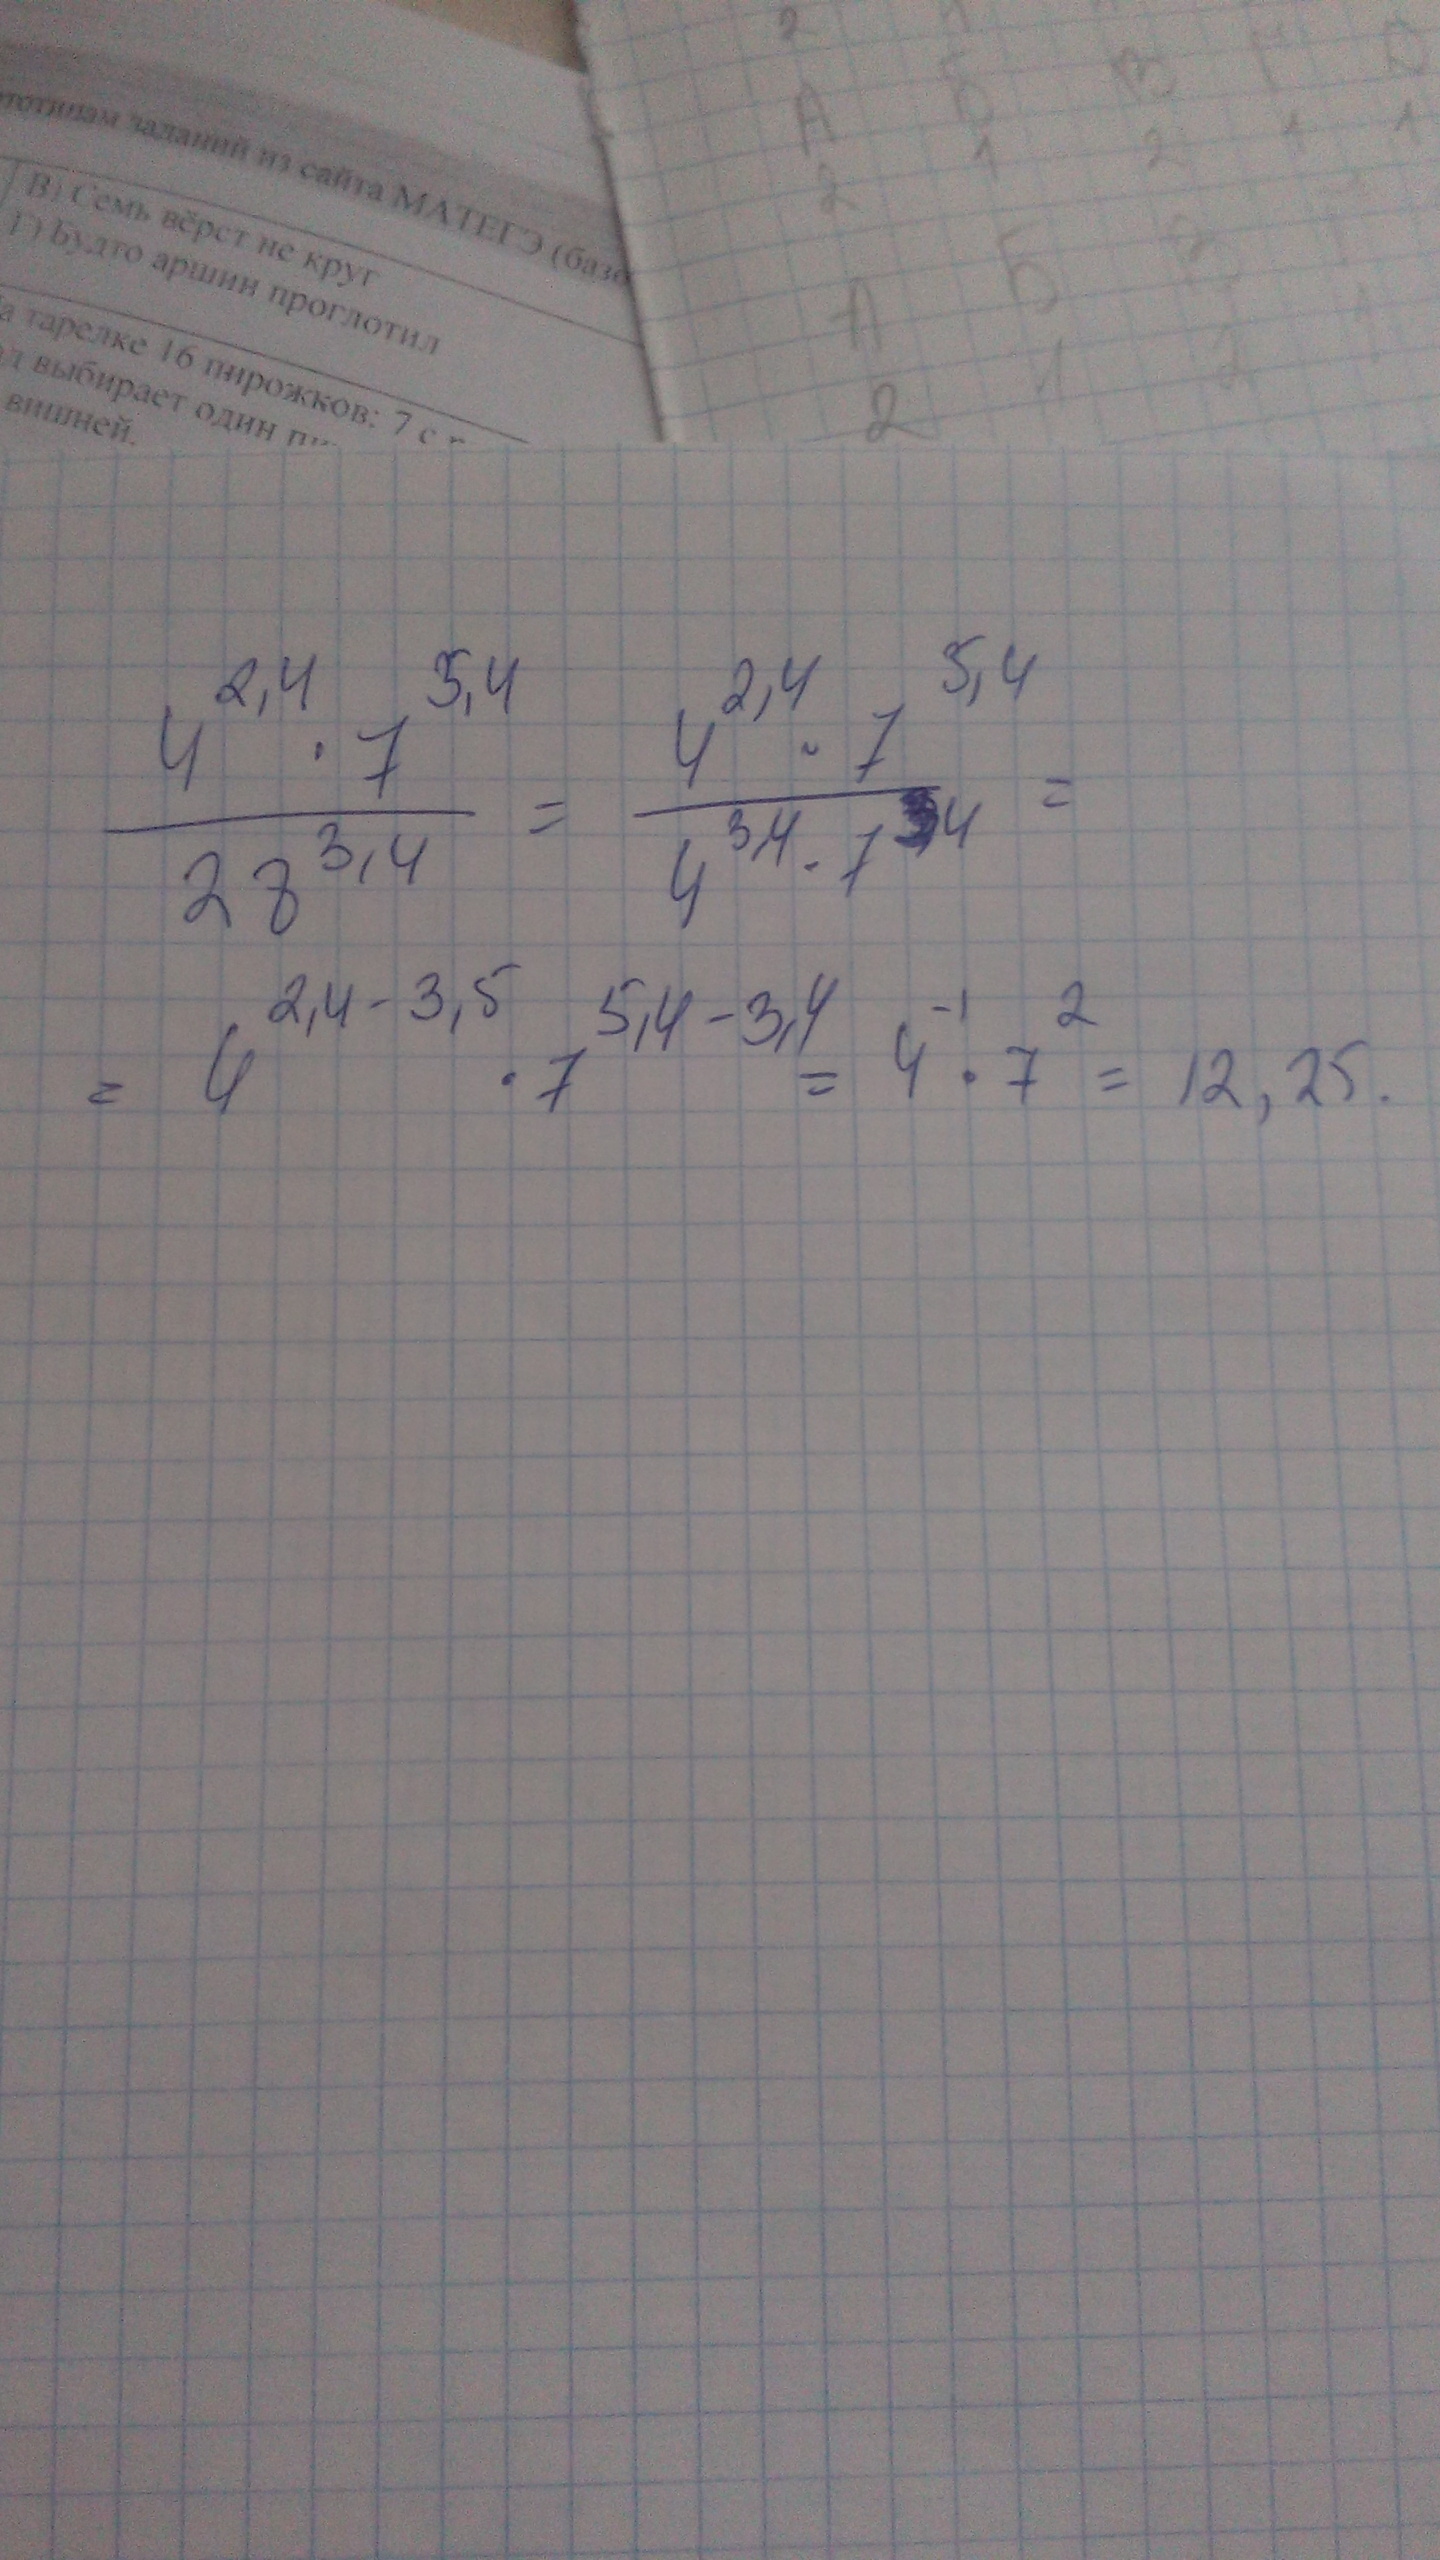 тотипам заданий из сайта МАТЕГЭ (базо
В) Семь вёрст не круг
Г) Будто аршин проглотил
а тарелке 16 пирожков: 7 с
выбирает один
вишней.
2
А Б В Г D
2 1 2 1 1
А Б В
2 1 2 1
4^2,4 · 7^5,4 / 28^3,4 = 4^2,4 · 7^5,4 / 4^3,4 · 7^3,4 =
= 4^2,4-3,5 · 7^5,4-3,4 = 4^-1 · 7^2 = 12,25.